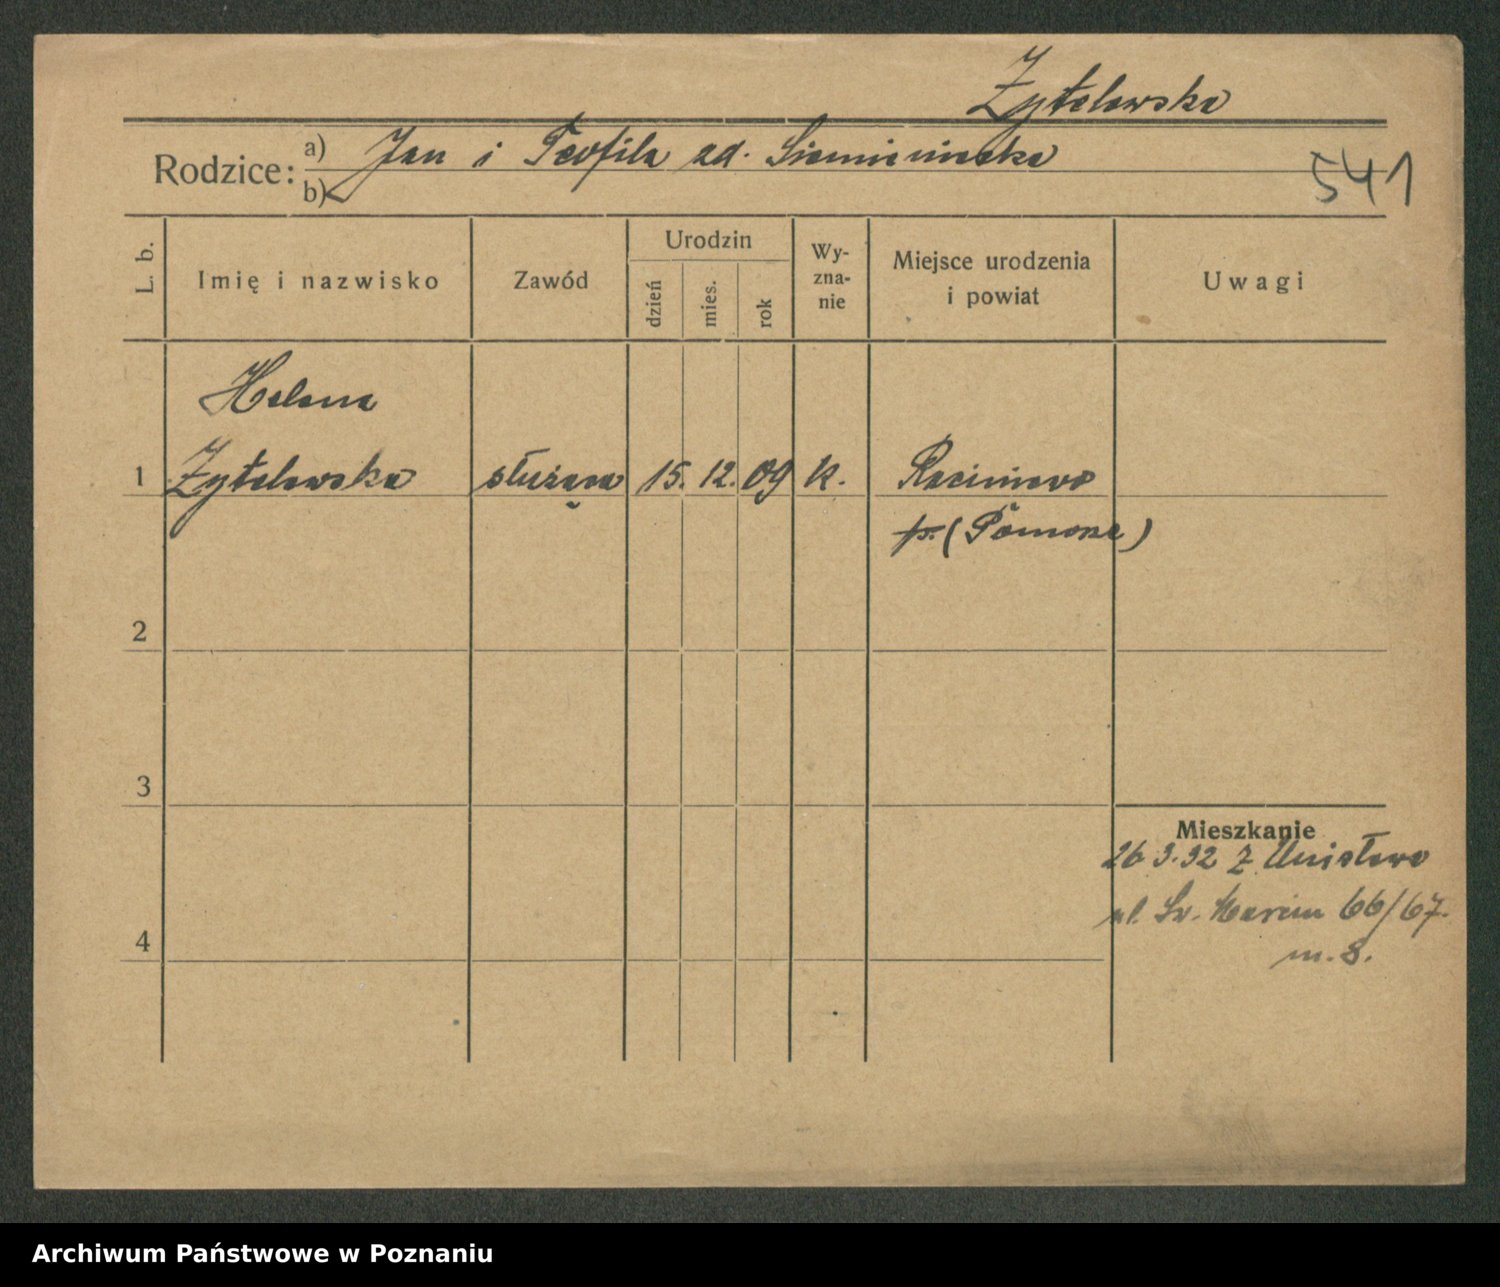 Żytelewska
Rodzice: a) Jan i Teofila zd. Siemieniecka
b)
541
L. b.
Imię i nazwisko
Zawód
Urodzin
dzień
mies.
rok
Wy-
zna-
nie
Miejsce urodzenia
i powiat
Uwagi
Helena
1 Żytelewska służąca 15. 12. 09 k. Raciniewo
p. (Pomorze)
2
3
Mieszkanie
26 3.32 z Unisława
ul. Św. Marcin 66/67.
4
m. 8.
Archiwum Państwowe w Poznaniu